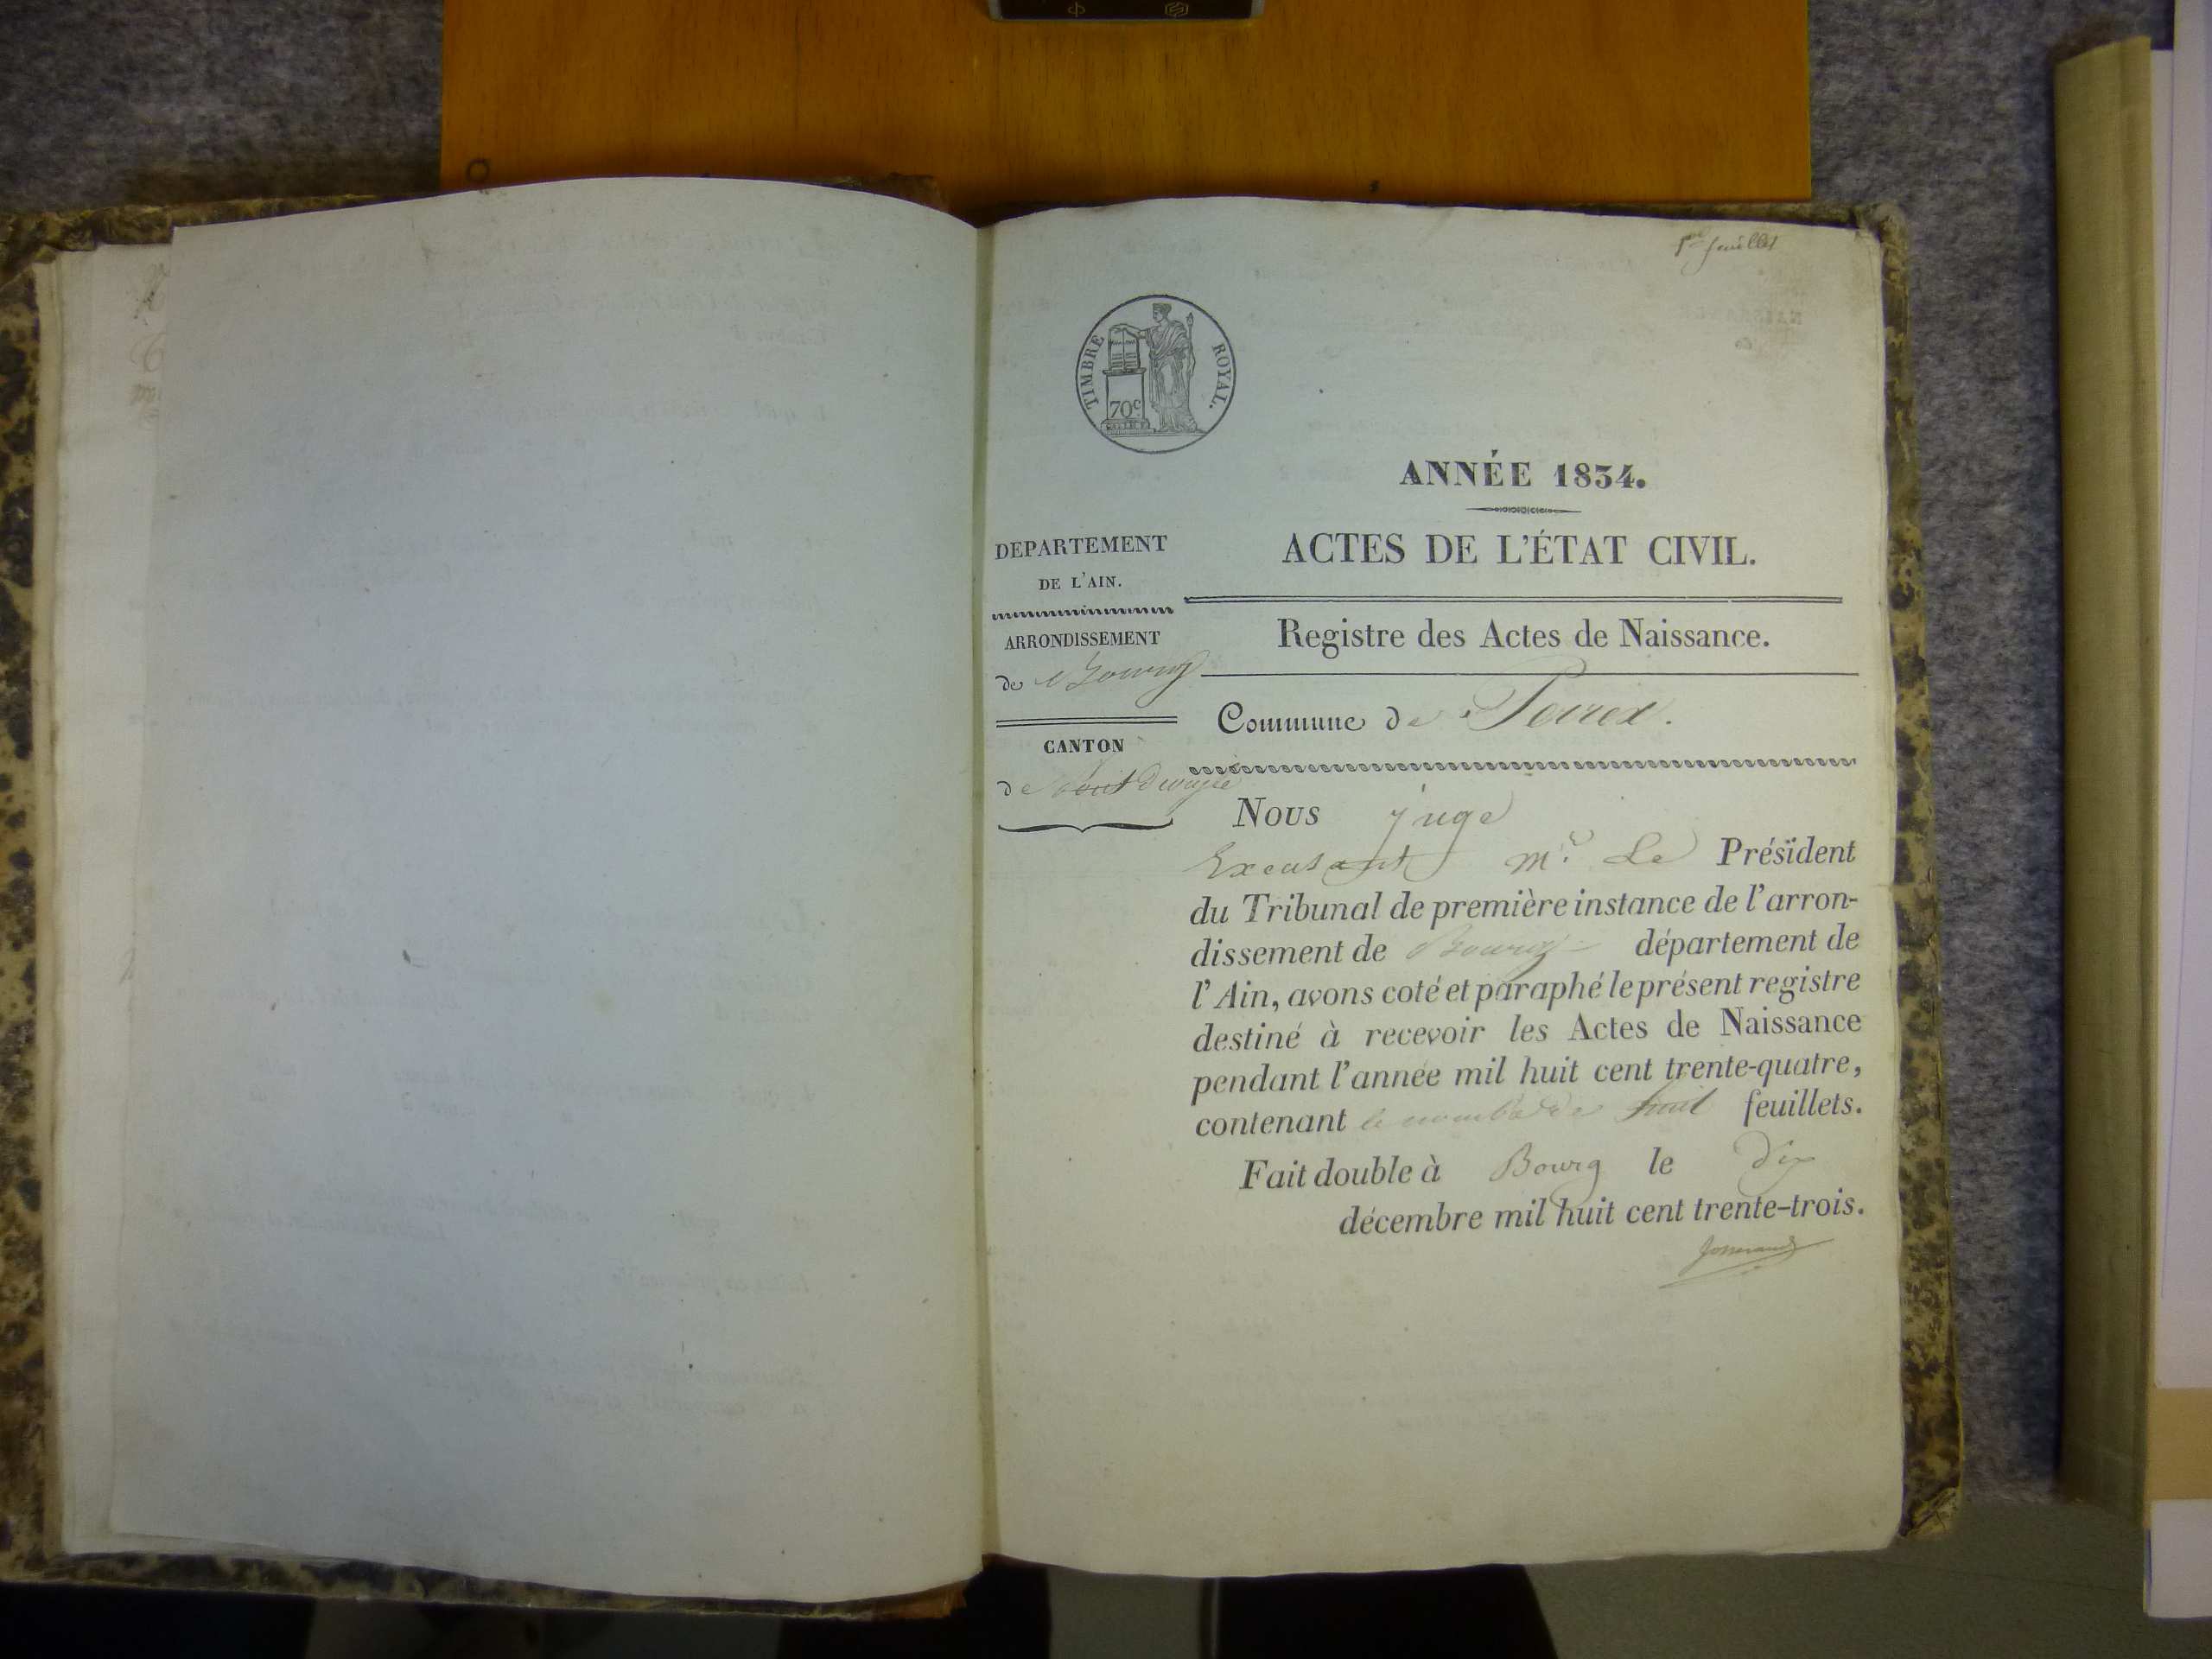 1er feuillet
TIMBRE ROYAL.
70c
ANNÉE 1834.
DEPARTEMENT
DE L'AIN.
ACTES DE L'ÉTAT CIVIL.
ARRONDISSEMENT
de Bourg
Registre des Actes de Naissance.
CANTON
de Pont de veyle
Commune de Perrex.
Nous juge
Excusant Mr. Le Président
du Tribunal de première instance de l'arron-
dissement de Bourg département de
l'Ain, avons coté et paraphé le présent registre
destiné à recevoir les Actes de Naissance
pendant l'année mil huit cent trente-quatre,
contenant le nombre de huit feuillets.
Fait double à Bourg le dix
décembre mil huit cent trente-trois.